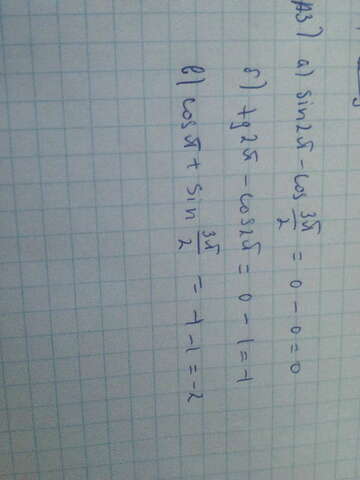 А3) а) sin2π - cos 3π/2 = 0 - 0 = 0
б) tg2π - cos2π = 0 - 1 = -1
в) cosπ + sin 3π/2 = -1 - 1 = -2